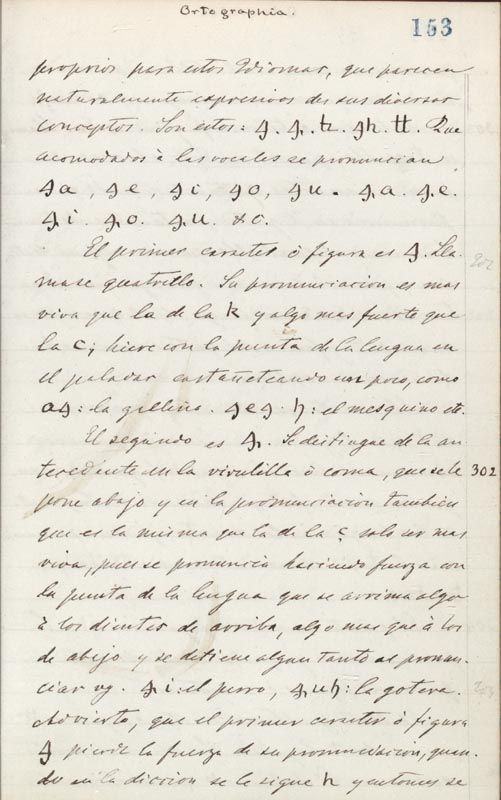 Ortographia.
153
proprios para estos Idiomas, que parecen
naturalmente expresivos de sus diversos
conceptos. Son estos: ꜭ. ꜯ. tz. ꜭh. tt. Que
acomodados à las vocales se pronuncian
ꜭa, ꜭe, ꜭi, ꜭo, ꜭu. ꜯa. ꜯe.
ꜯi. ꜯo. ꜯu. &c.
El primer caracter ò figura es ꜭ. Lla-
mase quatrillo. Su pronunciacion es mas
viva que la de la k y algo mas fuerte que
la c; hiere con la punta de la lengua en
el paladar castañeteando un poco, como
aꜭ: la gallina. ꜭeꜭ. h: el mesquino etc.
El segundo es ꜯ. Se distingue de la an-
tecedente en la virulilla ò coma, que se le 302
pone abajo y en la pronunciacion tambien
que es la misma que la de la ç solo ser mas
viva, pues se pronuncia haciendo fuerza con
la punta de la lengua que se arrima algo
à los dientes de arriba, algo mas que à los
de abajo y se detiene algun tanto al pronun-
ciar vg. ꜯi: el perro, ꜯuh: la gotera.
Advierto, que el primer caracter ò figura
ꜭ pierde la fuerza de su pronunciacion, quan-
do en la diccion se le sigue h y entonces se